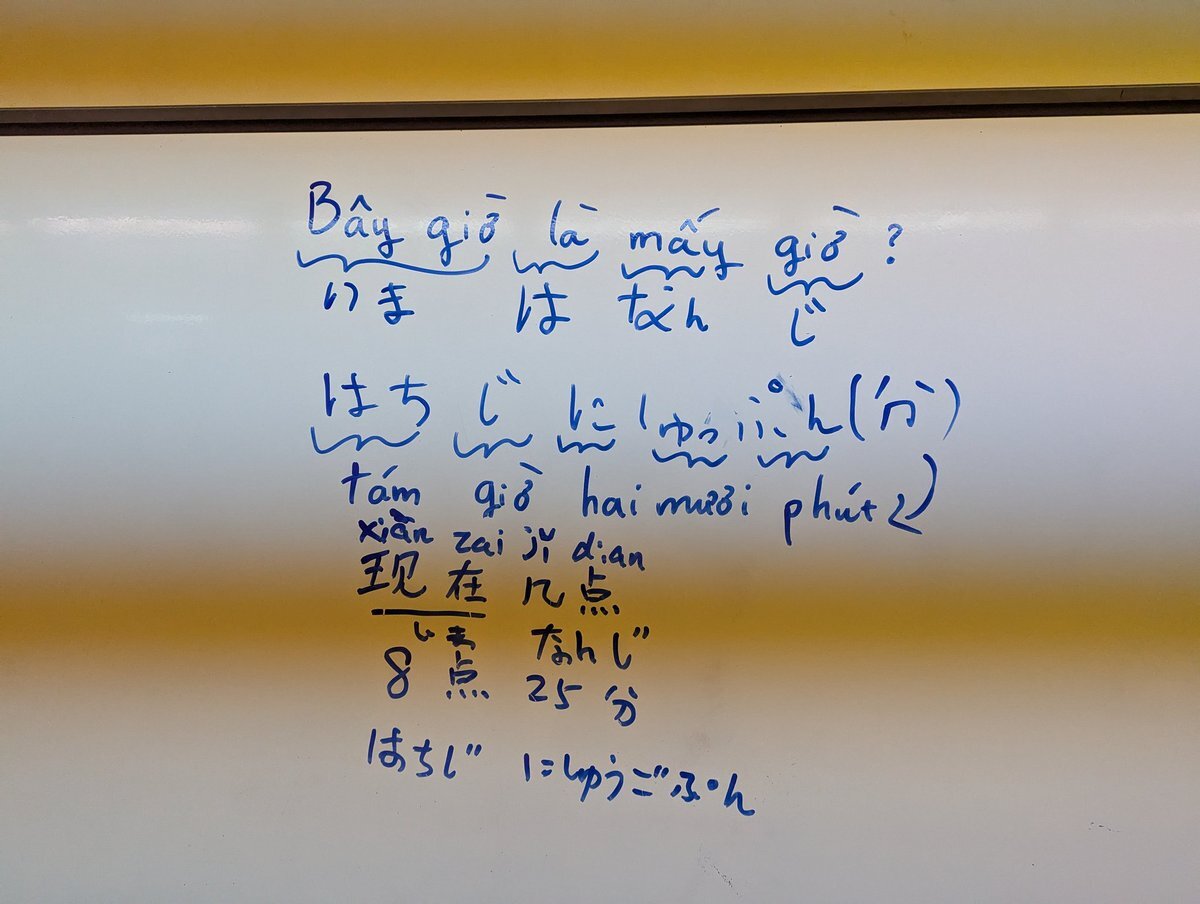 Bây giờ là mấy giờ?
いま は なん じ
はち じ にじゅうぷん(分)
tám giờ hai mươi phút
xiàn zai jǐ dian
现在 几点
いま なんじ
8点 25分
はちじ にじゅうごぷん